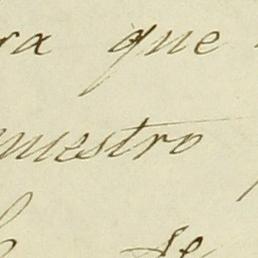 ra que
nuestro
de